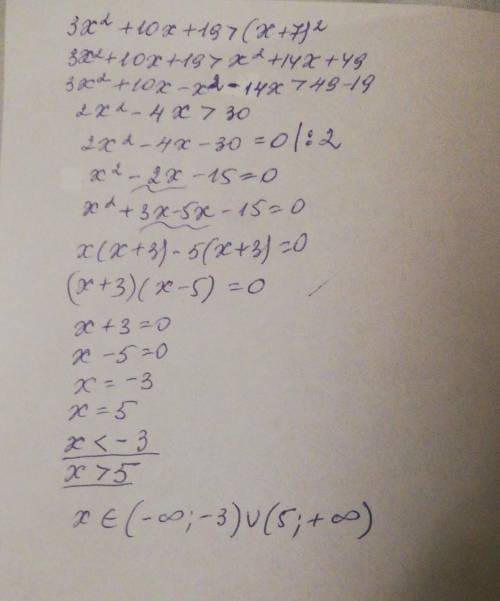 3x² + 10x + 19 > (x+7)²
3x² + 10x + 19 > x² + 14x + 49
3x² + 10x - x² - 14x > 49 - 19
2x² - 4x > 30
2x² - 4x - 30 = 0 |: 2
x² - 2x - 15 = 0
x² + 3x - 5x - 15 = 0
x(x+3) - 5(x+3) = 0
(x+3)(x-5) = 0
x + 3 = 0
x - 5 = 0
x = -3
x = 5
x < -3
x > 5
x ∈ (-∞; -3) ∪ (5; +∞)